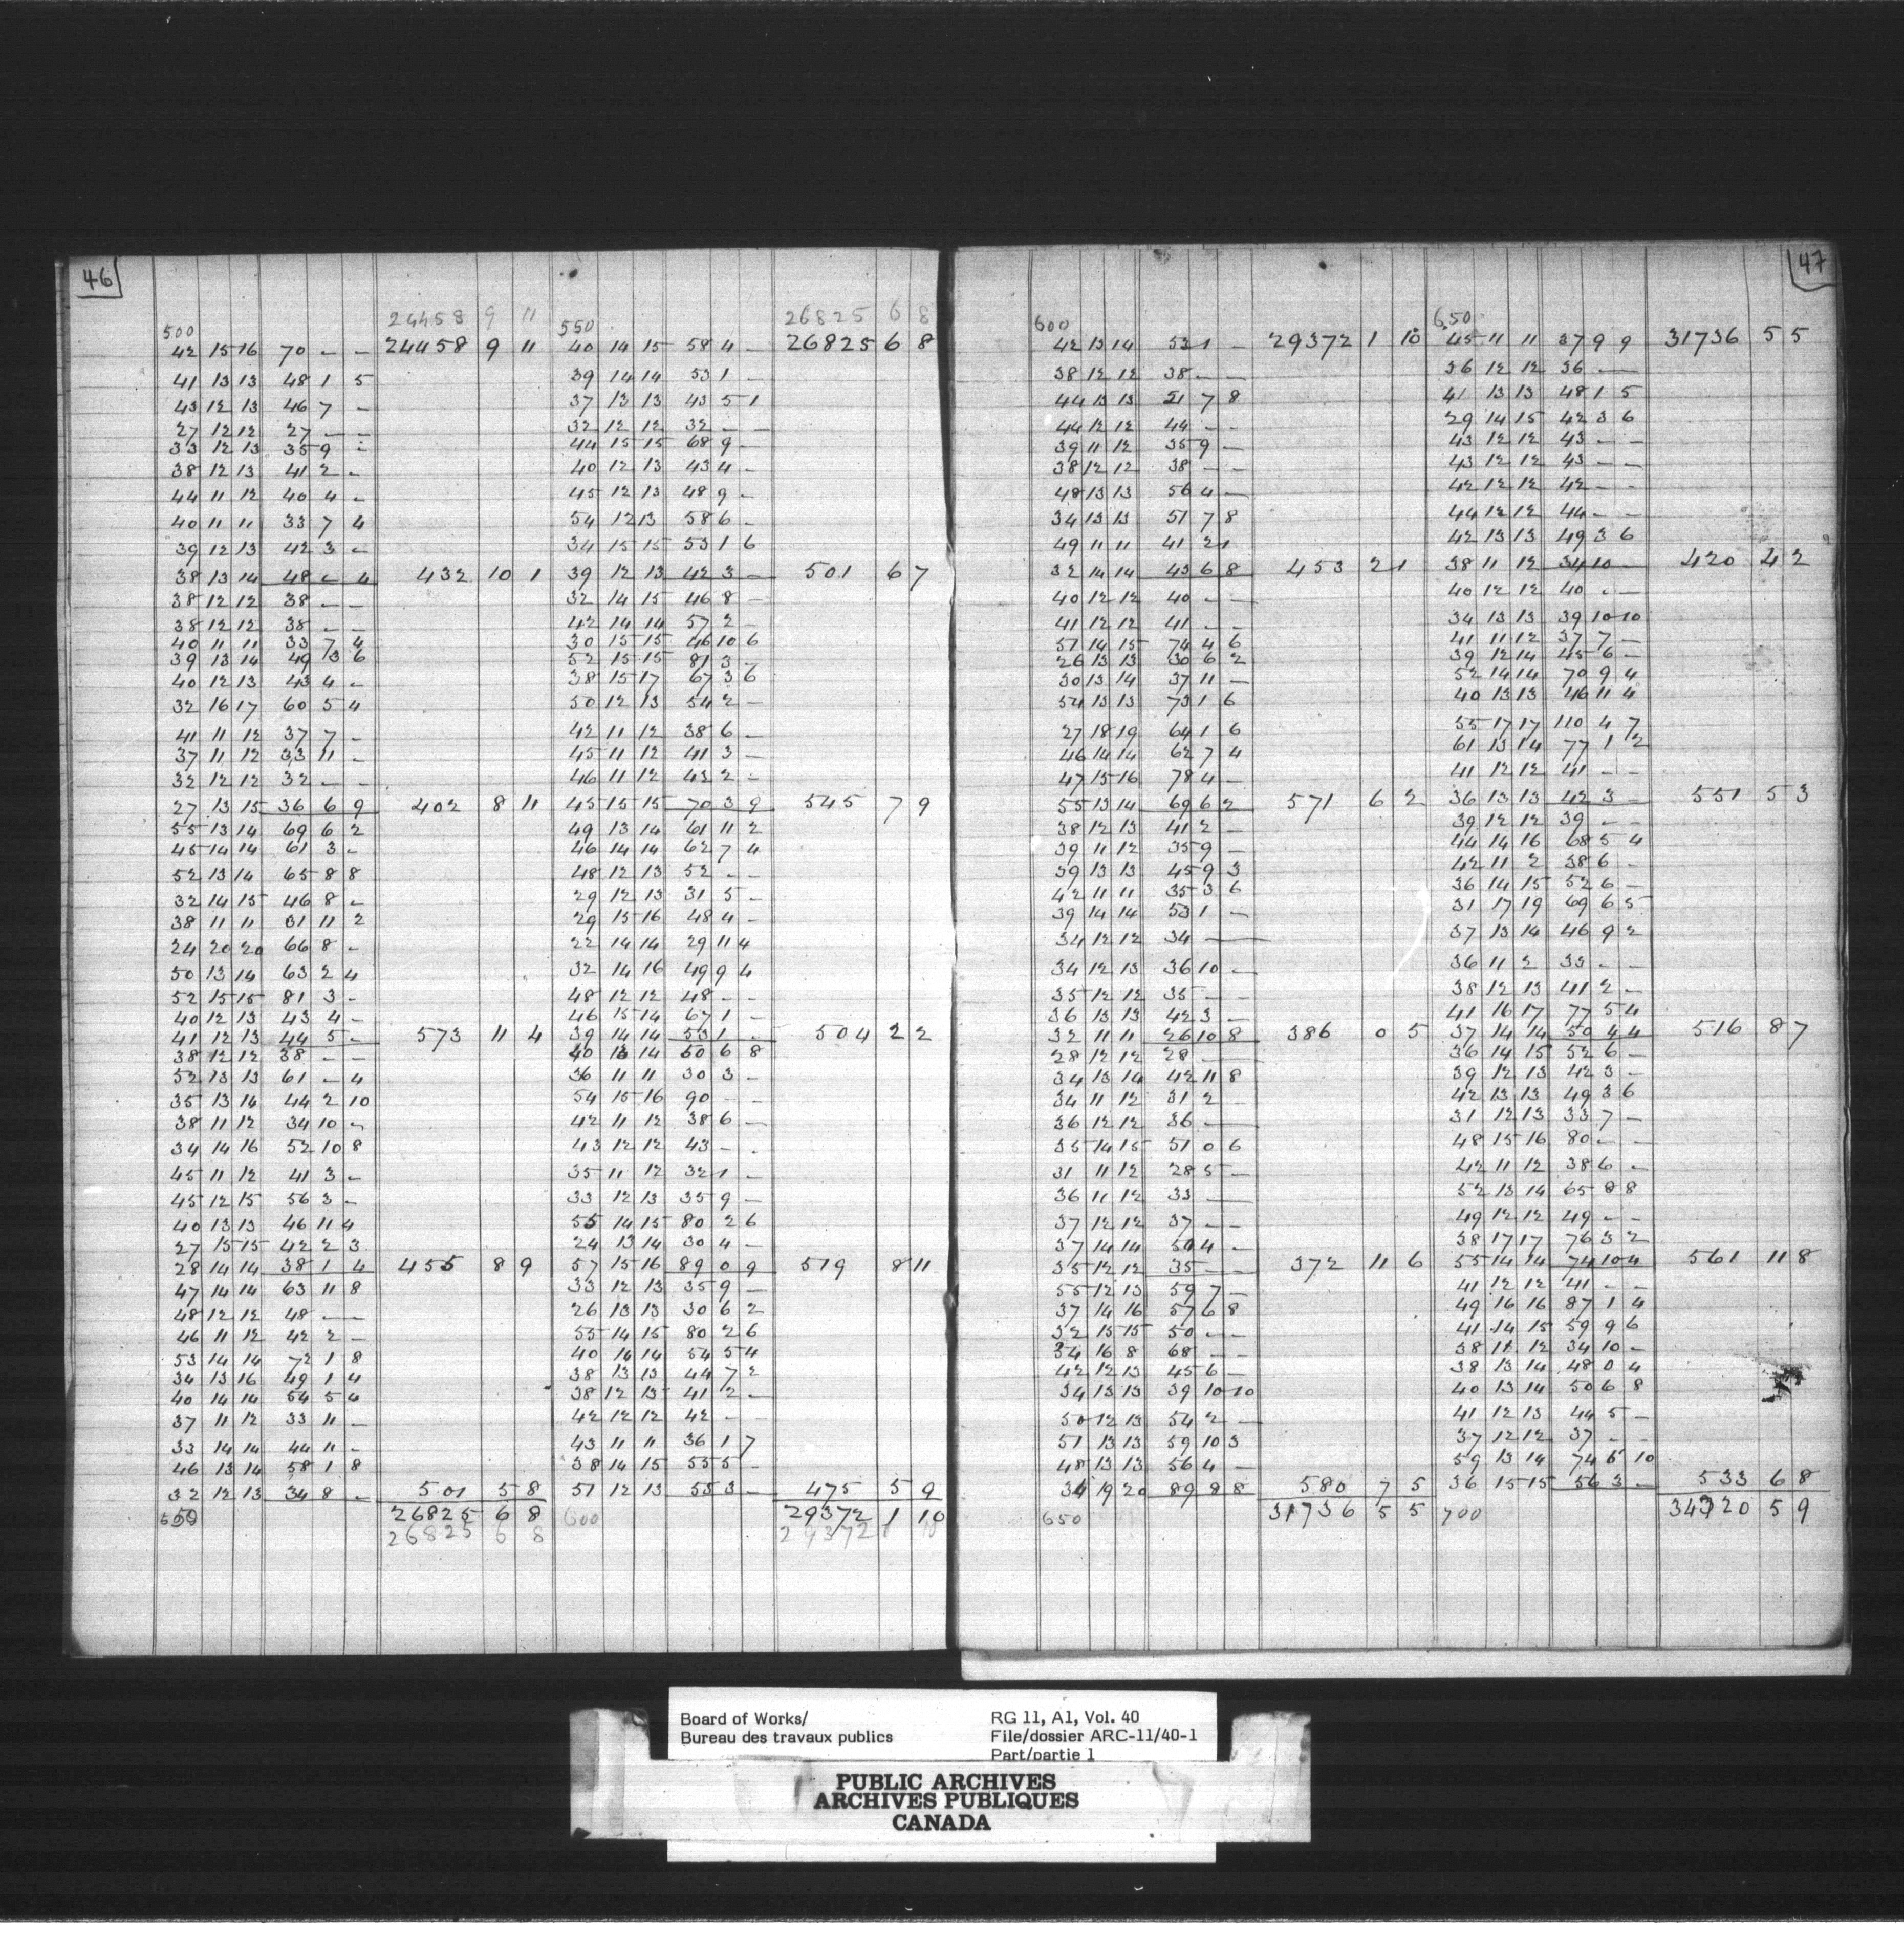 46
24458 9 11
26825 6 8
500
550
42 15 16 70 - - 24458 9 11 40 14 15 58 4 - 26825 6 8
41 13 13 48 1 5 39 14 14 53 1 -
43 12 13 46 7 - 37 13 13 43 5 1
27 12 12 27 - - 32 12 12 32 - -
33 12 13 35 9 - 44 15 15 68 9 -
38 12 13 41 2 - 40 12 13 43 4 -
44 11 12 40 4 - 45 12 13 48 9 -
40 11 11 33 7 4 54 12 13 58 6 -
39 12 13 42 3 - 34 15 15 53 1 6
38 13 14 48 - 4 432 10 1 39 12 13 42 3 - 501 6 7
38 12 12 38 - - 32 14 15 46 8 -
38 12 12 38 - - 42 14 14 57 2 -
40 11 11 33 7 4 30 15 15 46 10 6
39 13 14 49 3 6 52 15 15 81 3 -
40 12 13 43 4 - 38 15 17 67 3 6
32 16 17 60 5 4 50 12 13 54 2 -
41 11 12 37 7 - 42 11 12 38 6 -
37 11 12 33 11 - 45 11 12 41 3 -
32 12 12 32 - - 46 11 12 42 2 -
27 13 15 36 6 9 402 8 11 45 15 15 70 3 9 545 7 9
55 13 14 69 6 2 49 13 14 61 11 2
45 14 14 61 3 - 46 14 14 62 7 4
52 13 14 65 8 8 48 12 13 52 - -
32 14 15 46 8 - 29 12 13 31 5 -
38 11 11 31 11 2 29 15 16 48 4 -
24 20 20 66 8 - 22 14 14 29 11 4
50 13 14 63 2 4 32 14 16 49 9 4
52 15 15 81 3 - 48 12 12 48 - -
40 12 13 43 4 - 46 15 14 67 1 -
41 12 13 44 5 - 573 11 4 39 14 14 53 1 - 504 2 2
38 12 12 38 - - 40 13 14 50 6 8
52 13 13 61 - 4 36 11 11 30 3 -
35 13 14 44 2 10 54 15 16 90 - -
38 11 12 34 10 - 42 11 12 38 6 -
34 14 16 52 10 8 43 12 12 43 - -
45 11 12 41 3 - 35 11 12 32 1 -
45 12 15 56 3 - 33 12 13 35 9 -
40 13 13 46 11 4 55 14 15 80 2 6
27 15 15 42 2 3 24 13 14 30 4 -
28 14 14 38 1 4 455 8 9 57 15 16 89 0 9 519 8 11
47 14 14 63 11 8 33 12 13 35 9 -
48 12 12 48 - - 26 13 13 30 6 2
46 11 12 42 2 - 55 14 15 80 2 6
53 14 14 72 1 8 40 14 14 54 5 4
34 13 16 49 1 4 38 13 13 44 7 2
40 14 14 54 5 4 38 12 13 41 2 -
37 11 12 33 11 - 42 12 12 42 - -
33 14 14 44 11 - 43 11 11 36 1 7
46 13 14 58 1 8 38 14 15 55 5 -
32 12 13 34 8 - 501 5 8 51 12 13 55 3 - 475 5 9
550 26825 6 8 600 29372 1 10
26825 6 8 29372 1 10
47
600
650
42 13 14 53 1 - 29372 1 10 45 11 11 37 9 9 31736 5 5
38 12 12 38 - - 36 12 12 36 - -
44 13 13 51 7 8 41 13 13 48 1 5
44 12 12 44 - - 29 14 15 42 3 6
39 11 12 35 9 - 43 12 12 43 - -
38 12 12 38 - - 43 12 12 43 - -
48 13 13 56 4 - 42 12 12 42 - -
34 13 13 51 7 8 44 12 12 44 - -
49 11 11 41 2 1 42 13 13 49 3 6
32 14 14 43 6 8 453 2 1 38 11 12 34 10 - 420 4 2
40 12 12 40 - - 40 12 12 40 - -
41 12 12 41 - - 34 13 13 39 10 10
51 14 15 74 4 6 41 11 12 37 7 -
26 13 13 30 6 2 39 12 14 45 6 -
30 13 14 37 11 - 52 14 14 70 9 4
54 13 13 73 1 6 40 13 13 46 11 4
27 18 19 64 1 6 55 17 17 110 4 7
46 14 14 62 7 4 61 13 14 77 1 2
47 15 16 78 4 - 41 12 12 41 - -
55 13 14 69 6 2 571 6 2 36 13 13 42 3 - 551 5 3
38 12 13 41 2 - 39 12 12 39 - -
39 11 12 35 9 - 44 14 16 68 5 4
39 13 13 45 9 3 42 11 2 38 6 -
42 11 11 35 3 6 36 14 15 52 6 -
39 14 14 53 1 - 31 17 19 69 6 5
34 12 12 34 - 37 13 14 46 9 2
34 12 13 36 10 - 36 11 2 33 - -
35 12 12 35 - - 38 12 13 41 2 -
36 13 13 42 3 - 41 16 17 77 5 4
32 11 11 26 10 8 386 0 5 37 14 14 50 4 4 516 8 7
28 12 12 28 - 36 14 15 52 6 -
34 13 14 42 11 8 39 12 13 42 3 -
34 11 12 31 2 - 42 13 13 49 3 6
36 12 12 36 - 31 12 13 33 7 -
35 14 15 51 0 6 48 15 16 80 - -
31 11 12 28 5 - 42 11 12 38 6 -
36 11 12 33 - 52 13 14 65 8 8
37 12 12 37 - - 49 12 12 49 - -
37 14 14 50 4 - 38 17 17 76 3 2
35 12 12 35 - - 372 11 6 55 14 14 74 10 4 561 11 8
55 12 13 59 7 - 41 12 12 41 - -
37 14 16 57 6 8 49 16 16 87 1 4
32 15 15 50 - - 41 14 15 59 9 6
34 16 8 68 - - 38 11 12 34 10 -
42 12 13 45 6 - 38 13 14 48 0 4
34 13 13 39 10 10 40 13 14 50 6 8
50 12 13 54 2 - 41 12 13 44 5 -
51 13 13 59 10 3 37 12 12 37 - -
48 13 13 56 4 - 59 13 14 74 6 10
34 19 20 89 8 8 580 7 5 36 15 15 56 3 - 533 6 8
650 31736 5 5 700 34320 5 9
Board of Works/
Bureau des travaux publics
RG 11, A1, Vol. 40
File/dossier ARC-11/40-1
Part/partie 1
PUBLIC ARCHIVES
ARCHIVES PUBLIQUES
CANADA